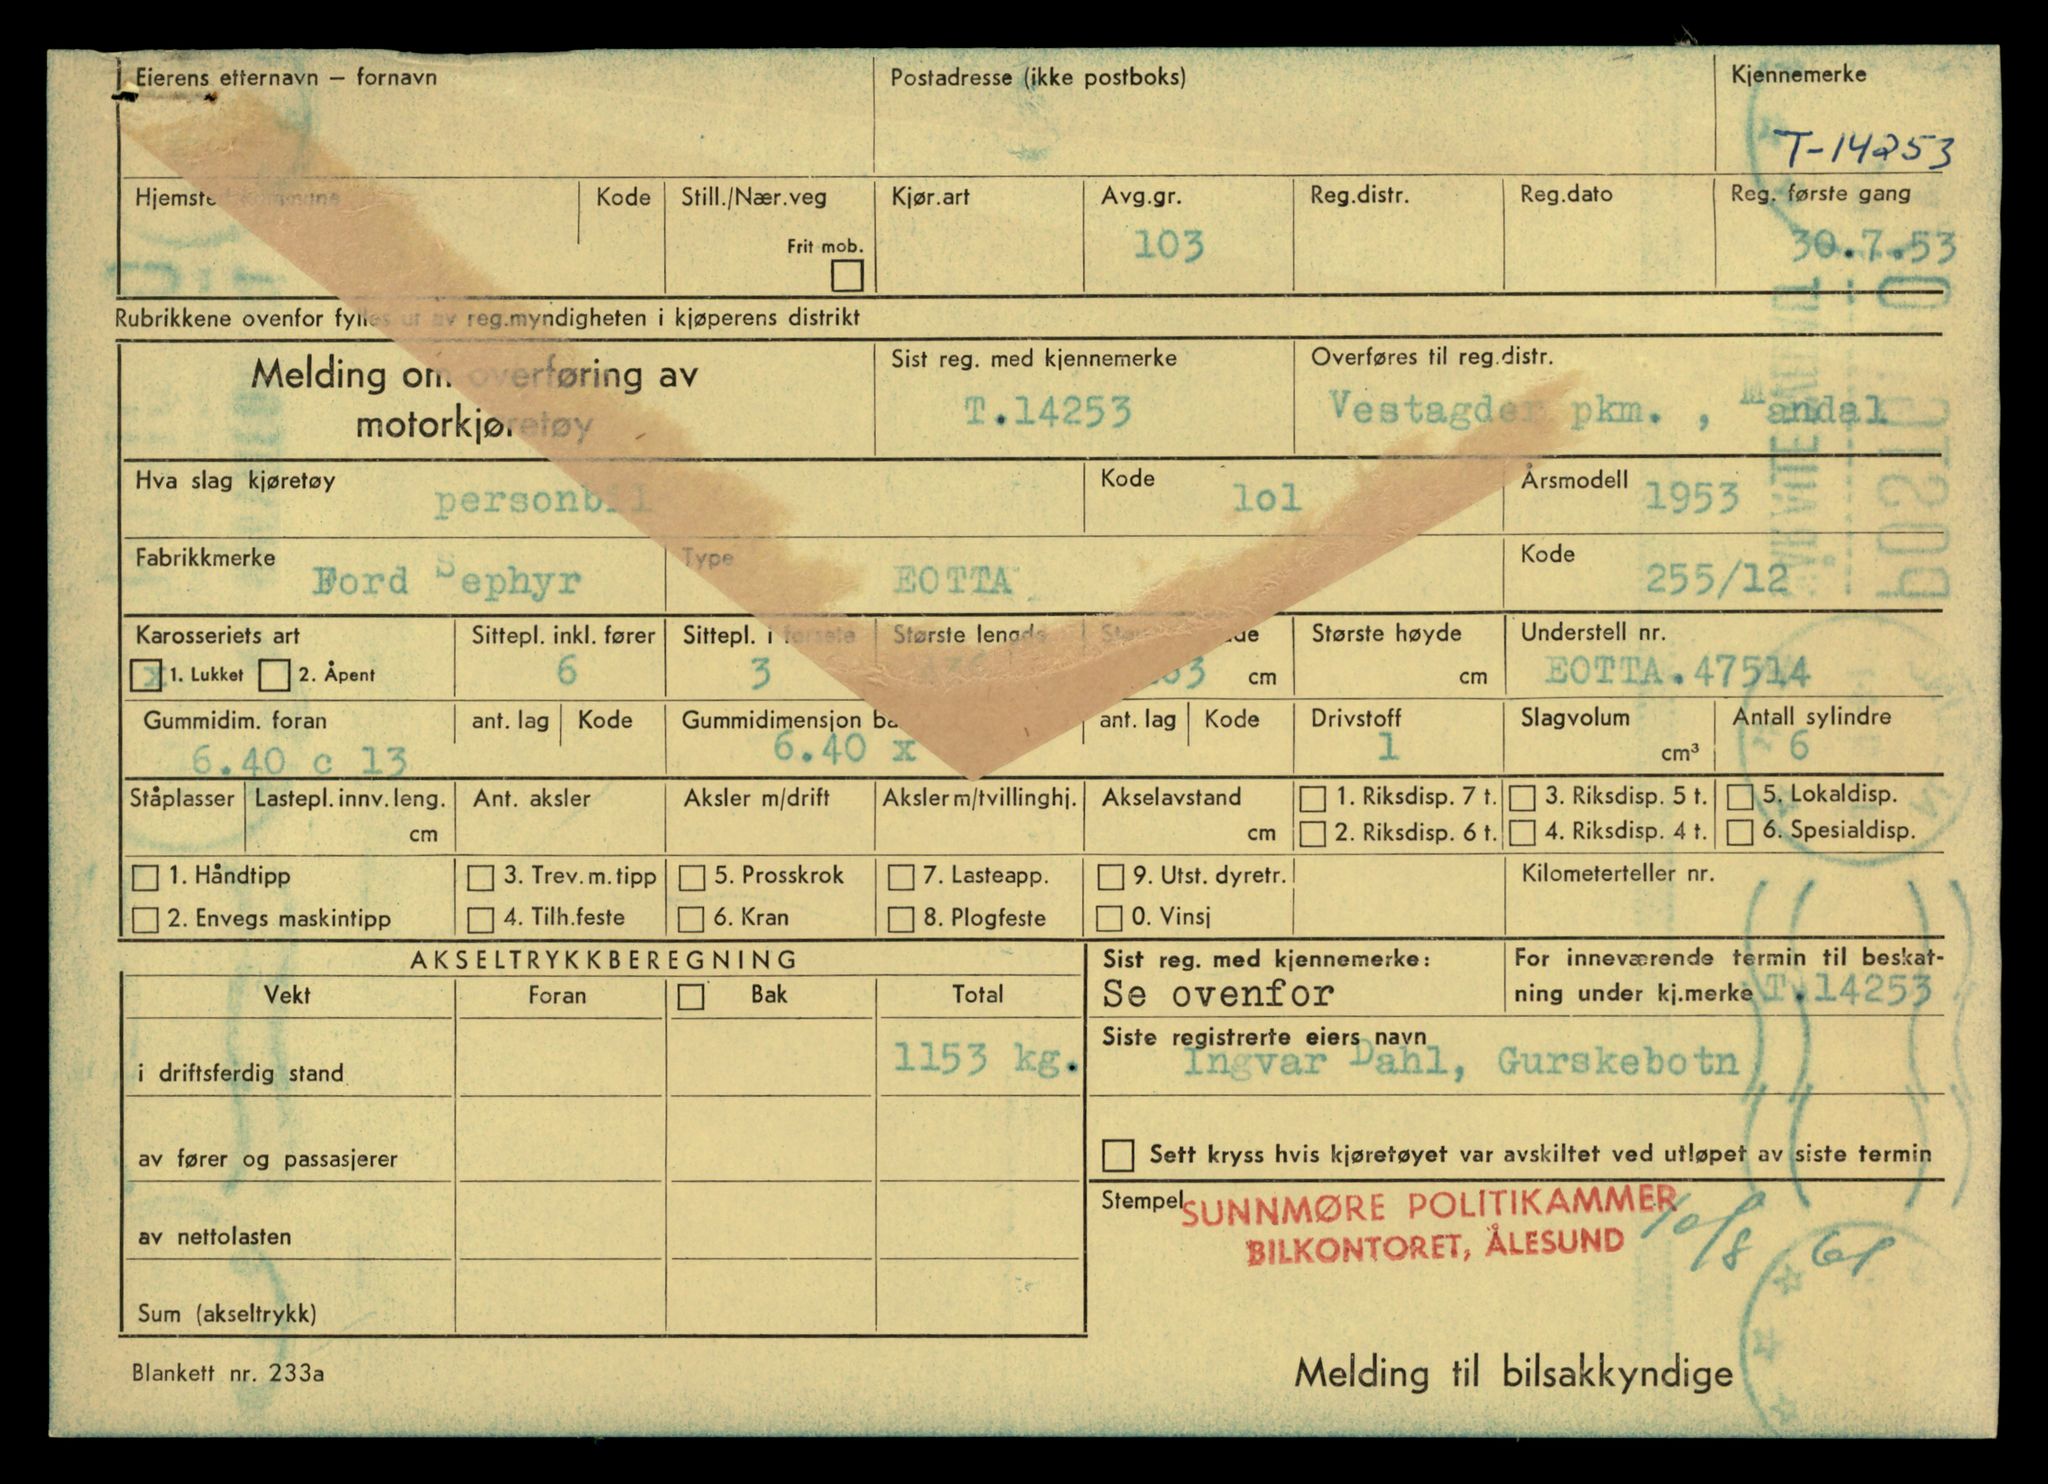 Eierens etternavn – fornavn Postadresse (ikke postboks) Kjennemerke
T-14253
Hjemste Kode Still./Nær.veg Kjør.art Avg.gr. Reg.distr. Reg.dato Reg. første gang
Frit mob. 103 30.7.53
Rubrikkene ovenfor fylles ut av reg.myndigheten i kjøperens distrikt
Melding om overføring av Sist reg. med kjennemerke Overføres til reg.distr.
motorkjøretøy T.14253 Vestagder pkm. , Mandal
Hva slag kjøretøy personbil Kode lol Årsmodell 1953
Fabrikkmerke Ford Sephyr Type EOTTA Kode 255/12
Karosseriets art Sittepl. inkl. fører Sittepl. i forsete Største lengde Største høyde Understell nr.
x 1. Lukket 2. Åpent 6 3 cm cm EOTTA.47514
Gummidim. foran ant. lag Kode Gummidimensjon ant. lag Kode Drivstoff Slagvolum Antall sylindre
6.40 c 13 6.40 x 1 cm³ 6
Ståplasser Lastepl. innv. leng. Ant. aksler Aksler m/drift Aksler m/tvillinghj. Akselavstand 1. Riksdisp. 7 t. 3. Riksdisp. 5 t. 5. Lokaldisp.
cm cm 2. Riksdisp. 6 t. 4. Riksdisp. 4 t. 6. Spesialdisp.
1. Håndtipp 3. Trev. m. tipp 5. Prosskrok 7. Lasteapp. 9. Utst. dyretr. Kilometerteller nr.
2. Envegs maskintipp 4. Tilh.feste 6. Kran 8. Plogfeste 0. Vinsj
AKSELTRYKKBEREGNING Sist reg. med kjennemerke: For inneværende termin til beskat-
Vekt Foran Bak Total Se ovenfor ning under kj.merke T.14253
Siste registrerte eiers navn
i driftsferdig stand 1153 kg. Ingvar Dahl, Gurskebotn
av fører og passasjerer Sett kryss hvis kjøretøyet var avskiltet ved utløpet av siste termin
Stempel SUNNMØRE POLITIKAMMER
av nettolasten BILKONTORET, ÅLESUND 10/8 61
Sum (akseltrykk)
Blankett nr. 233a Melding til bilsakkyndige